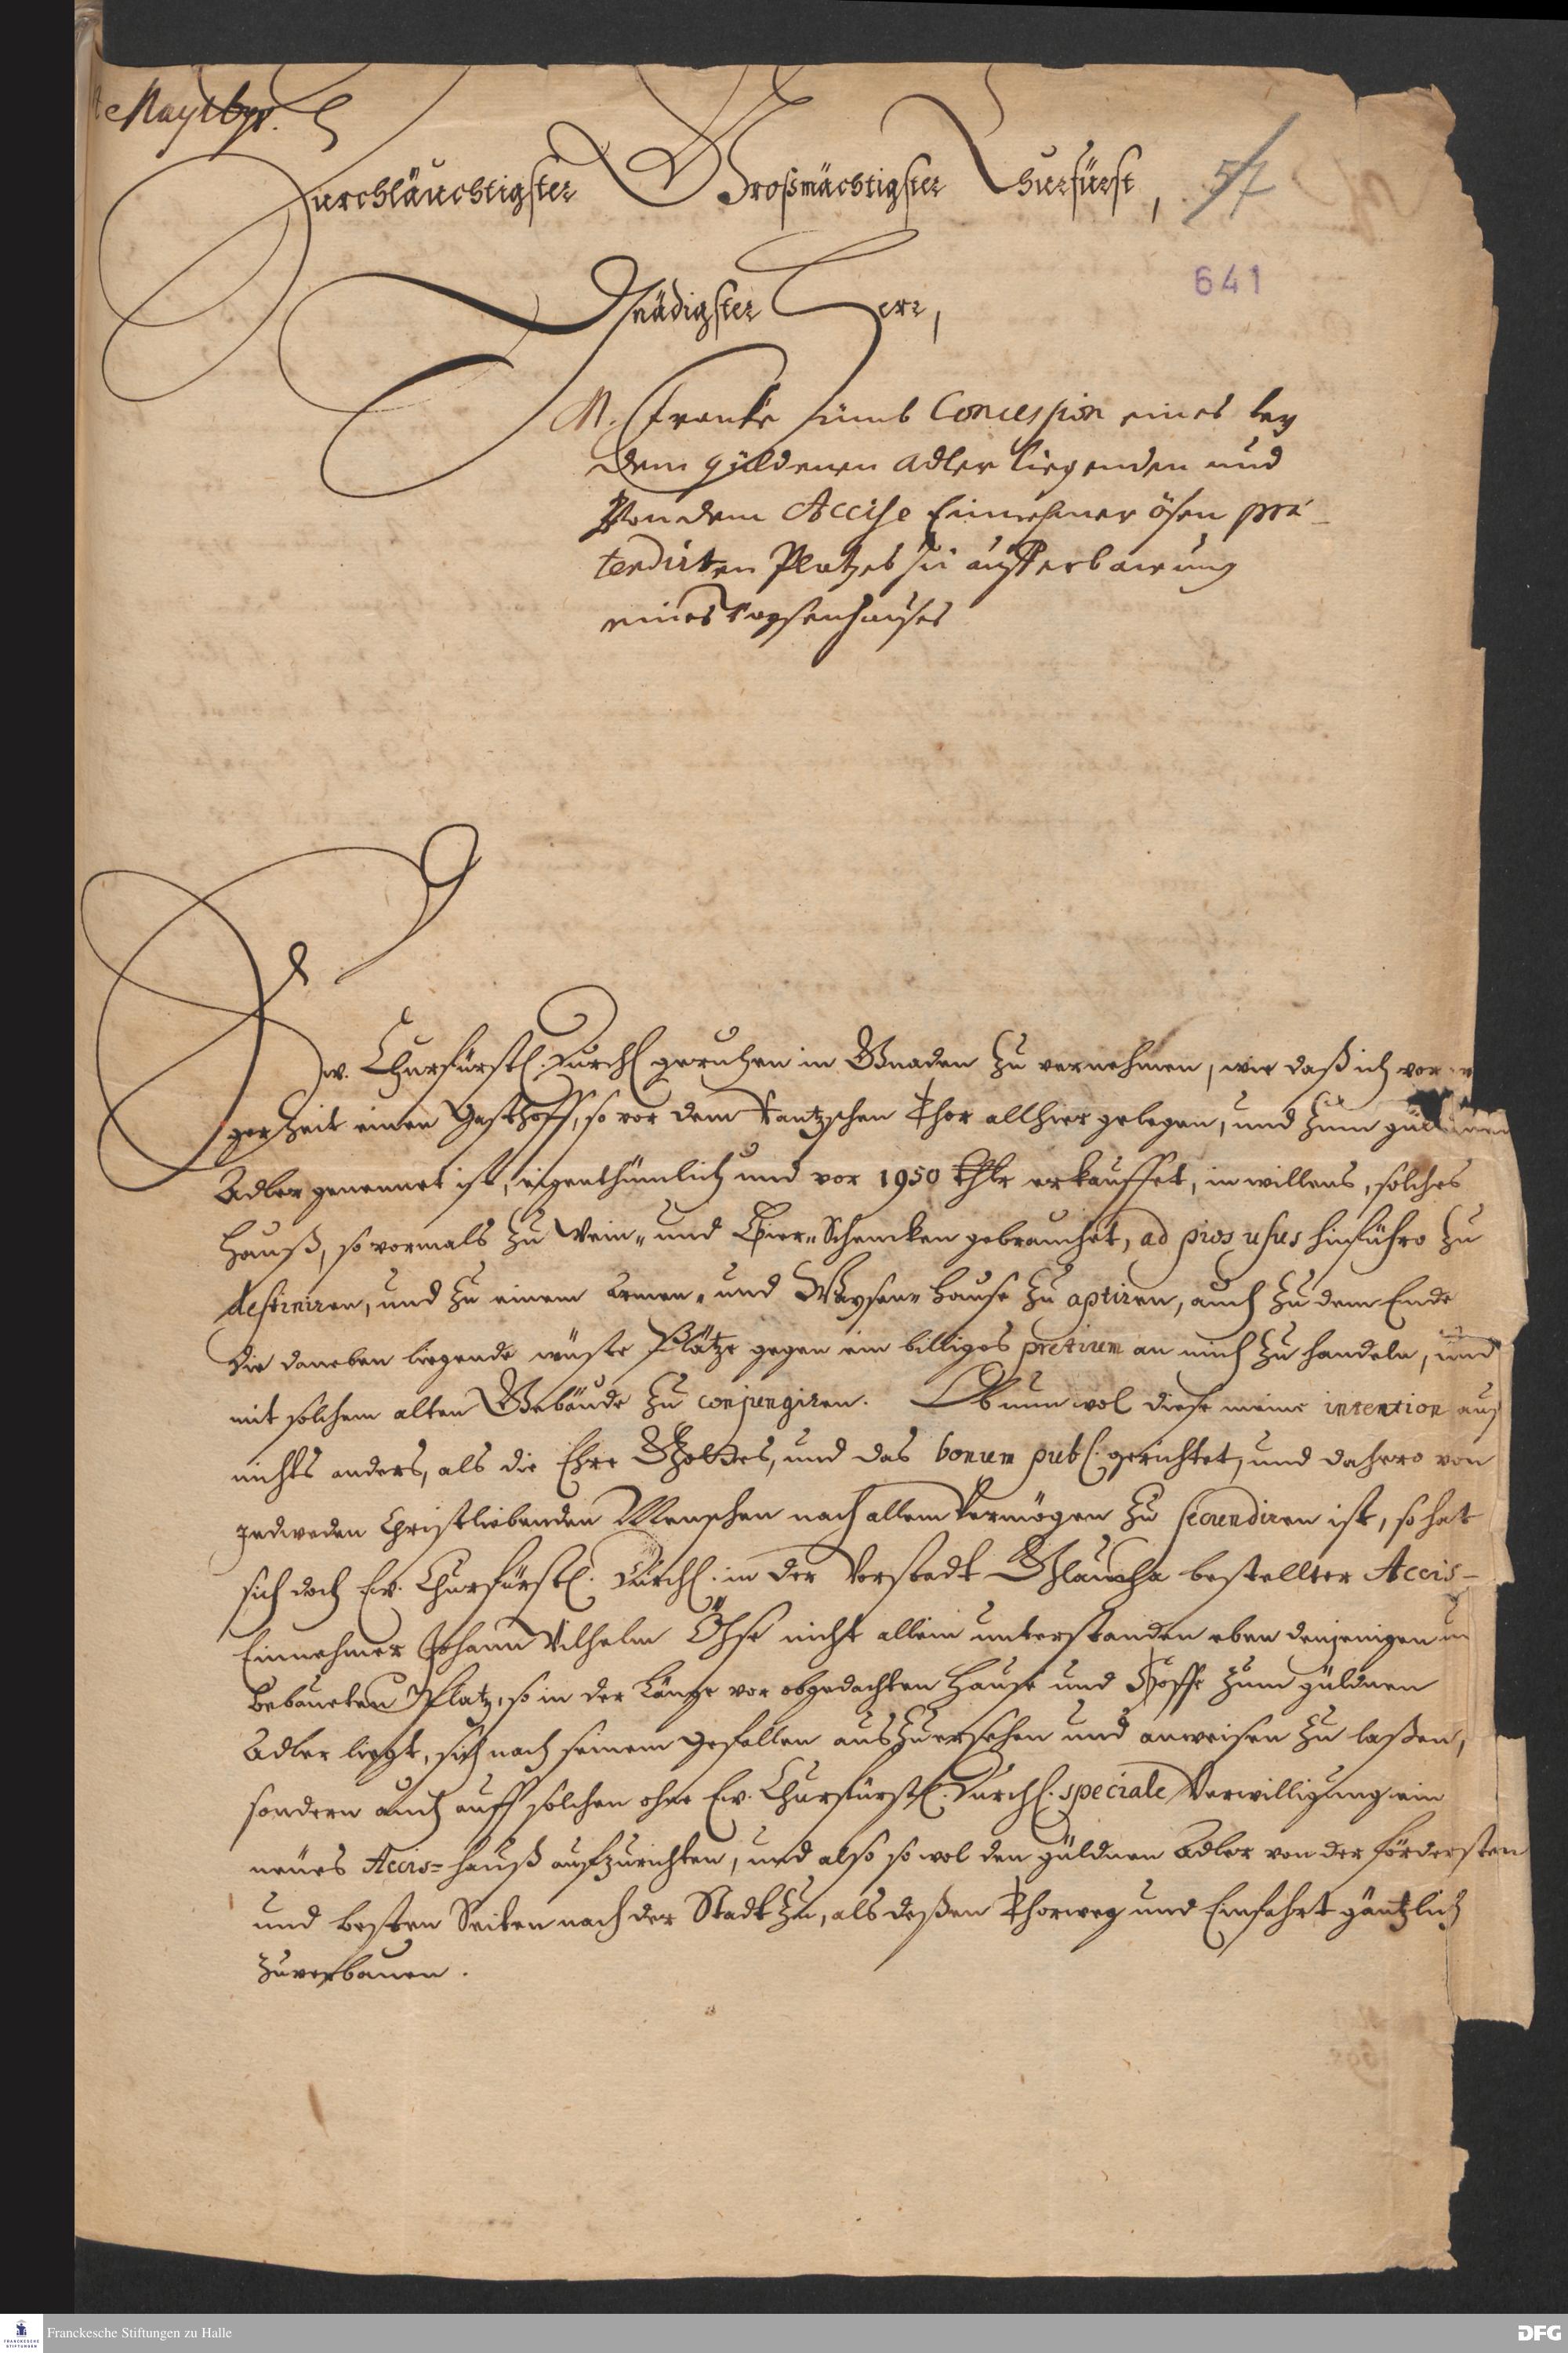 Magdbr.
Durchläuchtigster Großmächtigster Churfürst,
57
641
Gnädigster Herr,
M. Franke umb Concession eines bey
dem güldenen Adler liegenden und
Von dem Accise Einnehmer ösen præ-
tendirten Platzes zu aufferbauung
eines Waysenhauses
Ew. Churfürstl. Durchl. geruhen in Gnaden zu vernehmen, wie daß ich vor
ger Zeit einen Gasthoff, so vor dem Rantzschen Thor allhier gelegen, und zum güldenen
Adler genennet ist, eigenthümlich und vor 1950 Thlr erkauffet, in willens, solches
Hauß, so vormals zu Wein- und Bier-Schencken gebrauchet, ad pios usus hinführo zu
destiniren, und zu einem Armen- und Waysen-Hause zu aptiren, auch zu dem Ende
die daneben liegende wüste Plätze gegen ein billiges pretium an mich zu handeln, und
mit solchem alten Gebäude zu conjungiren. Ob nun wol diese meine intention auf
nichts anders, als die Ehre Gottes, und das bonum publ. gerichtet, und dahero von
jedweden Christliebenden Menschen nach allem Vermögen zu secundiren ist, so hat
sich doch Ew. Churfürstl. Durchl. in der Vorstadt Glaucha bestellter Accis-
Einnehmer Johann Wilhelm Öhse nicht allein unterstanden eben denjenigen un
bebaueten Platz, so in der Länge vor obgedachten Hause und Hoffe zum güldnen
Adler liegt, sich nach seinem gefallen auszuersehen und anweisen zu laßen,
sondern auch auff solchen ohne Ew. Churfürstl. Durchl. speciale Verwilligung ein
neues Accis-Hauß aufzurichten, und also so wol den güldnen Adler von der fördersten
und besten Seiten nach der Stadt zu, als deßen Thorweg und Einfahrt gäntzlich
zuverbauen.
Franckesche Stiftungen zu Halle
FRANCKESCHE
STIFTUNGEN
DFG